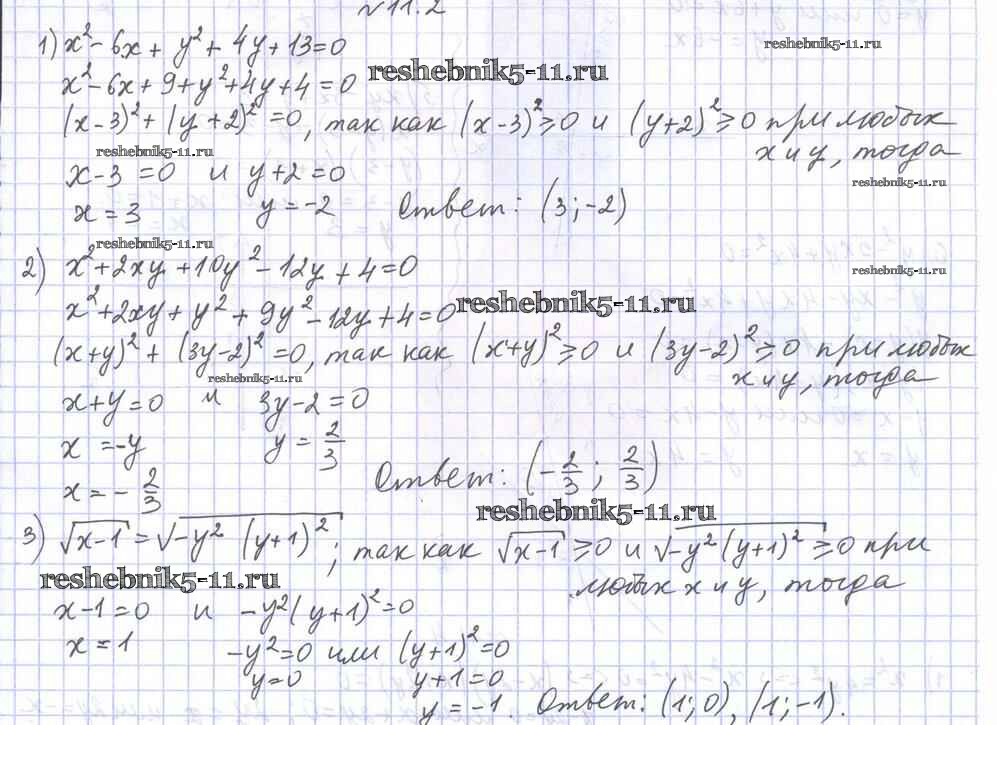 №11.2
1) x² - 6x + y² + 4y + 13 = 0
reshebnik5-11.ru
reshebnik5-11.ru
x² - 6x + 9 + y² + 4y + 4 = 0
(x-3)² + (y+2)² = 0, так как (x-3)² ≥ 0 и (y+2)² ≥ 0 при любых
x и y, тогда
reshebnik5-11.ru
x-3 = 0 и y+2 = 0
reshebnik5-11.ru
x = 3 y = -2 Ответ: (3; -2)
reshebnik5-11.ru
2) x² + 2xy + 10y² - 12y + 4 = 0
reshebnik5-11.ru
x² + 2xy + y² + 9y² - 12y + 4 = 0
reshebnik5-11.ru
(x+y)² + (3y-2)² = 0, так как (x+y)² ≥ 0 и (3y-2)² ≥ 0 при любых
x и y, тогда
reshebnik5-11.ru
x+y = 0 и 3y-2 = 0
x = -y y = 2/3
x = -2/3 Ответ: (-2/3; 2/3)
reshebnik5-11.ru
3) √(x-1) = √(-y² (y+1)²); так как √(x-1) ≥ 0 и √(-y² (y+1)²) ≥ 0 при
любых x и y, тогда
reshebnik5-11.ru
x-1 = 0 и -y²(y+1)² = 0
x = 1 -y² = 0 или (y+1)² = 0
y = 0 y+1 = 0
y = -1. Ответ: (1; 0), (1; -1).